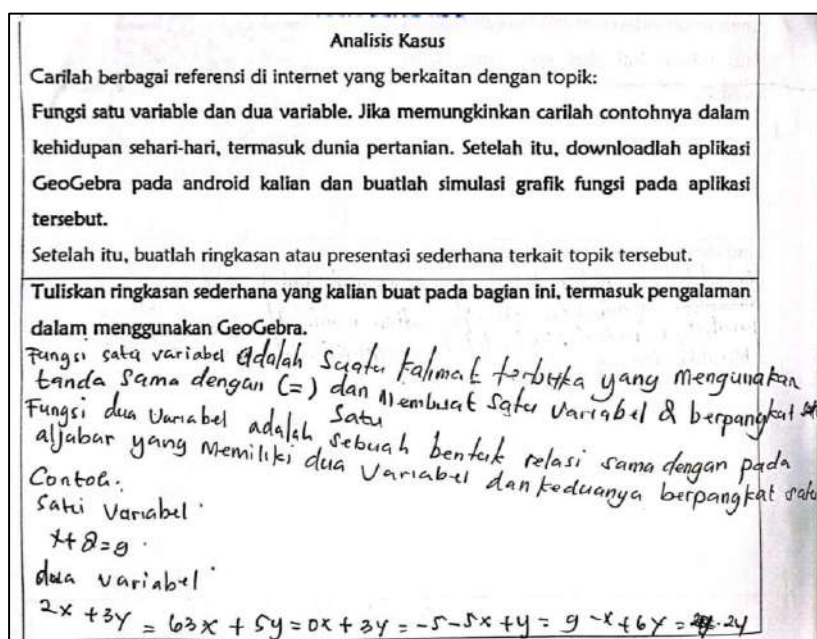 Analisis Kasus
Carilah berbagai referensi di internet yang berkaitan dengan topik:
Fungsi satu variable dan dua variable. Jika memungkinkan carilah contohnya dalam
kehidupan sehari-hari, termasuk dunia pertanian. Setelah itu, downloadlah aplikasi
GeoGebra pada android kalian dan buatlah simulasi grafik fungsi pada aplikasi
tersebut.
Setelah itu, buatlah ringkasan atau presentasi sederhana terkait topik tersebut.
Tuliskan ringkasan sederhana yang kalian buat pada bagian ini, termasuk pengalaman
dalam menggunakan GeoGebra.
Fungsi satu variabel adalah suatu kalimat terbuka yang mengunakan
tanda sama dengan (=) dan Membuat satu variabel & berpangkat
satu
Fungsi dua variabel adalah sebuah bentuk relasi sama dengan pada
aljabar yang memiliki dua variabel dan keduanya berpangkat satu
Contoh:
Satu variabel
x+8=9
dua variabel
2x + 3y = 63x + 5y = 0x + 3y = -5-5x+y = 9-x+6y =